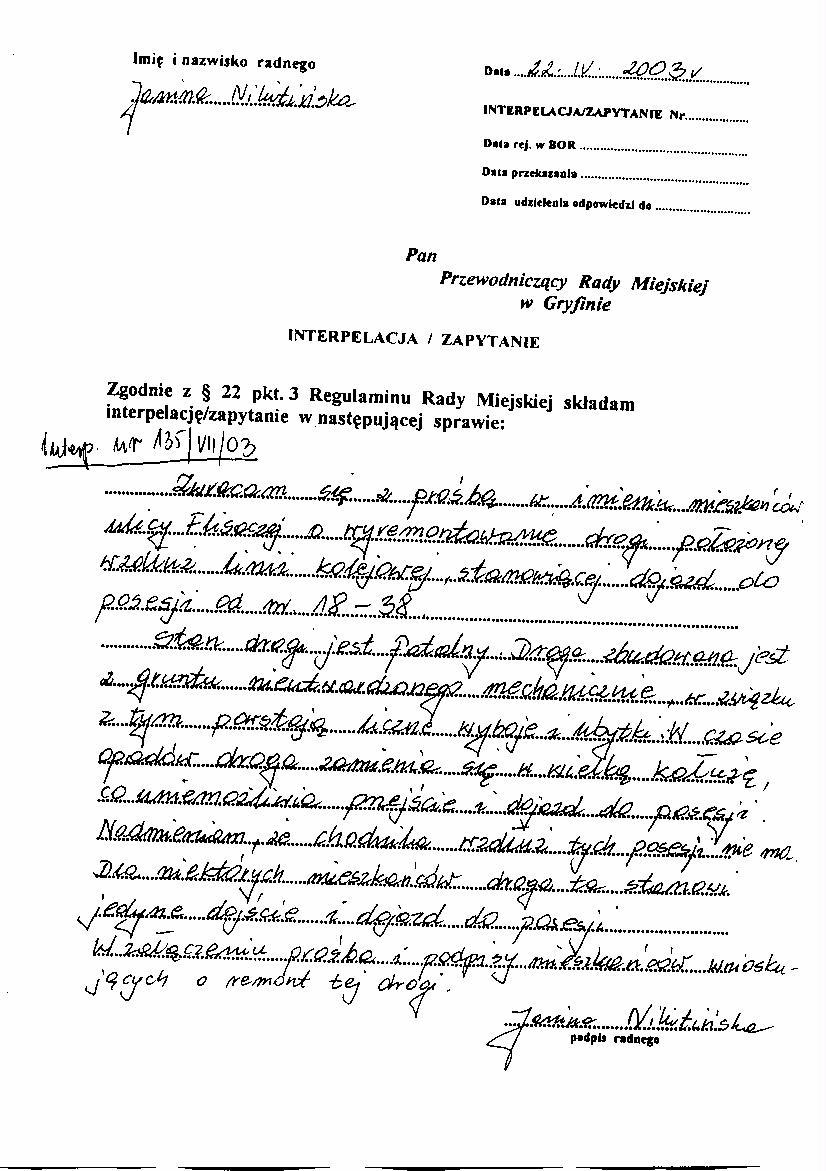 Imię i nazwisko radnego
Janina Nikitińska
Data 22. IV. 2003 r
INTERPELACJA/ZAPYTANIE Nr
Data rej. w BOR
Data przekazania
Data udzielenia odpowiedzi do
Pan
Przewodniczący Rady Miejskiej
w Gryfinie
INTERPELACJA / ZAPYTANIE
Zgodnie z § 22 pkt. 3 Regulaminu Rady Miejskiej składam
interpelację/zapytanie w następującej sprawie:
Interp. nr 135/VII/03
Zwracam się z prośbą w imieniu mieszkańców
ulicy Flisaczej o wyremontowanie drogi położonej
wzdłuż linii kolejowej, stanowiącej dojazd do
posesji od nr. 18 - 38.
Stan drogi jest fatalny. Droga zbudowana jest
z gruntu nieutwardzonego mechanicznie, w związku
z tym powstają liczne wyboje i ubytki. W czasie
opadów droga zamienia się w wielką kałużę,
co uniemożliwia przejście i dojazd do posesji.
Nadmieniam, że chodnika wzdłuż tych posesji nie ma.
Dla niektórych mieszkańców droga ta stanowi
jedyne dojście i dojazd do posesji.
W załączeniu prośba i podpisy mieszkańców wniosku-
jących o remont tej drogi.
Janina Nikitińska
podpis radnego